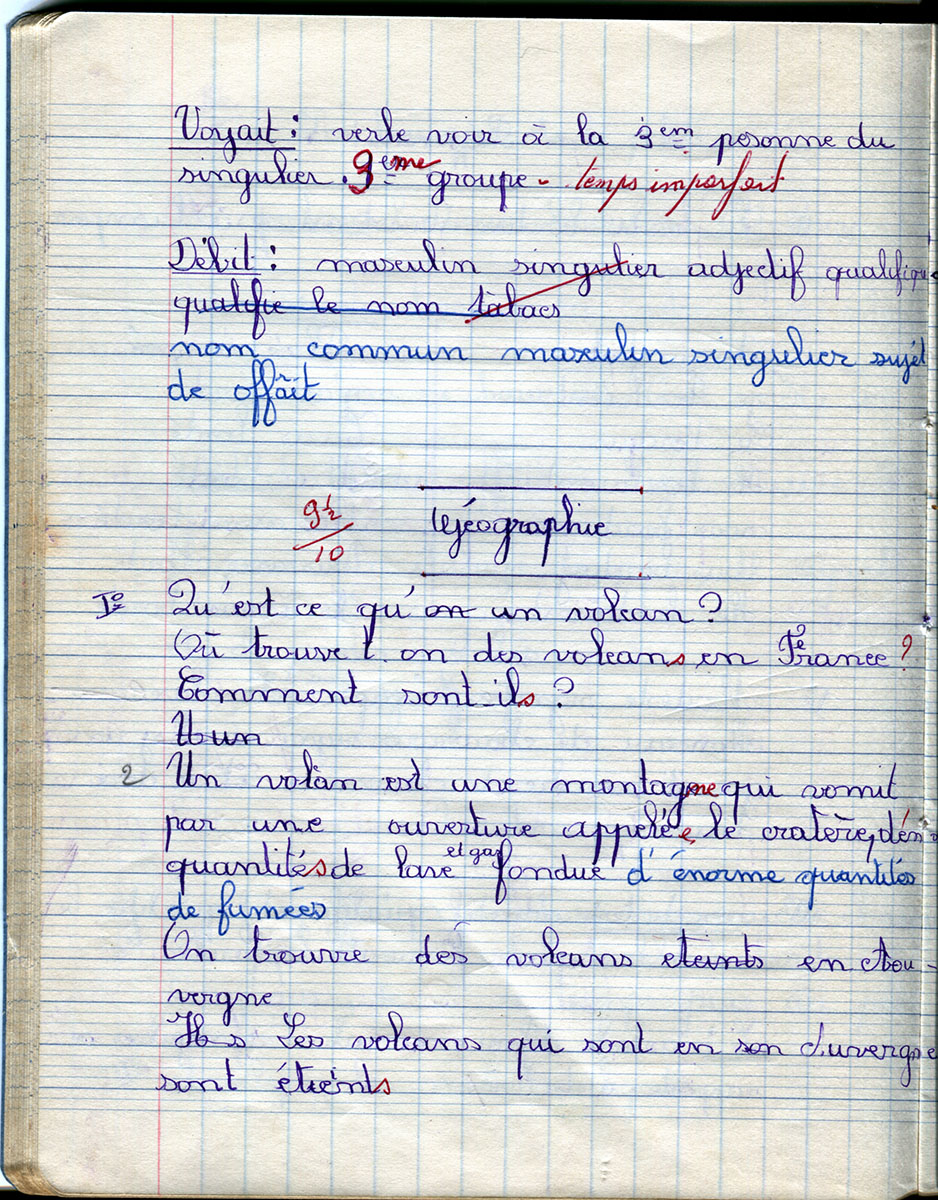 Voyait : verbe voir à la 3em pesonne du
singulier. 3eme groupe - temps imparfait
Débit : masculin singulier adjectif qualifi
qualifie le nom tabacs
nom commun masculin singulier sujet
de offrait
9½/10 Géographie
1° Qu'est ce qu'on un volcan ?
Où trouve t. on des volcans en France ?
Comment sont-ils ?
Un
2 Un volan est une montagne qui vomit
par une ouverture appelée, le cratère, d'én
quantités de lave et gaz fondue d'énorme quantités
de fumées
On trouvre des volcans eteints en Au-
vergne
Ils Les volcans qui sont en son Auvergne
sont éteints